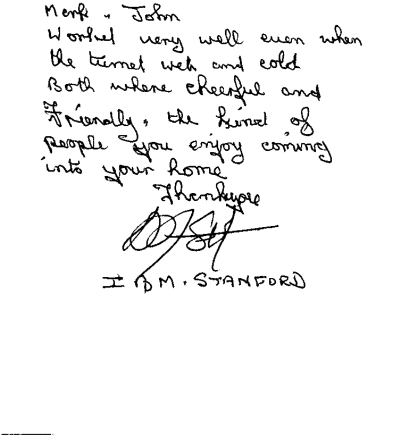 Mark, John
Worked very well even when
the turned wet and cold
Both where cheerful and
Friendly, the kind of
people you enjoy coming
into your home
Thankyou
I B M. STANFORD